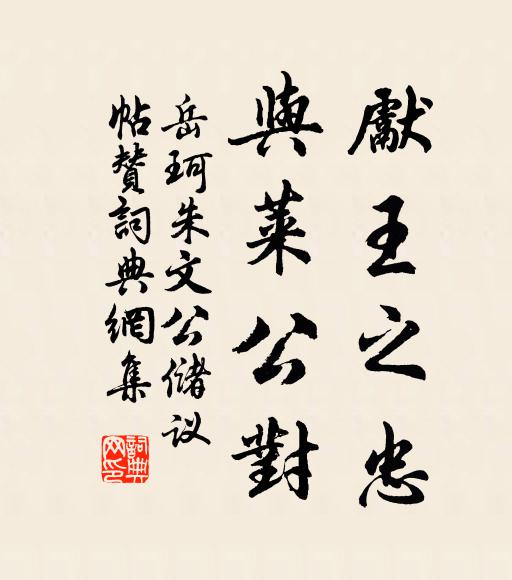 獻王之忠
與萊公對
岳珂朱文公儲议
帖贊詞典網集
詞典网印